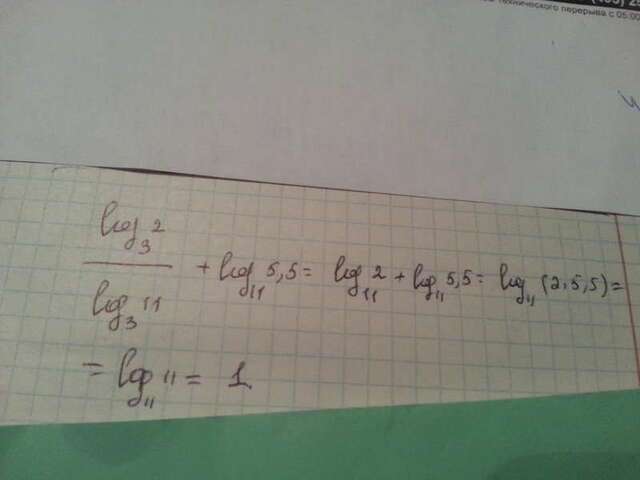 технического перерыва с 05:00
log₃ 2 / log₃ 11 + log₁₁ 5,5 = log₁₁ 2 + log₁₁ 5,5 = log₁₁ (2·5,5) =
= log₁₁ 11 = 1